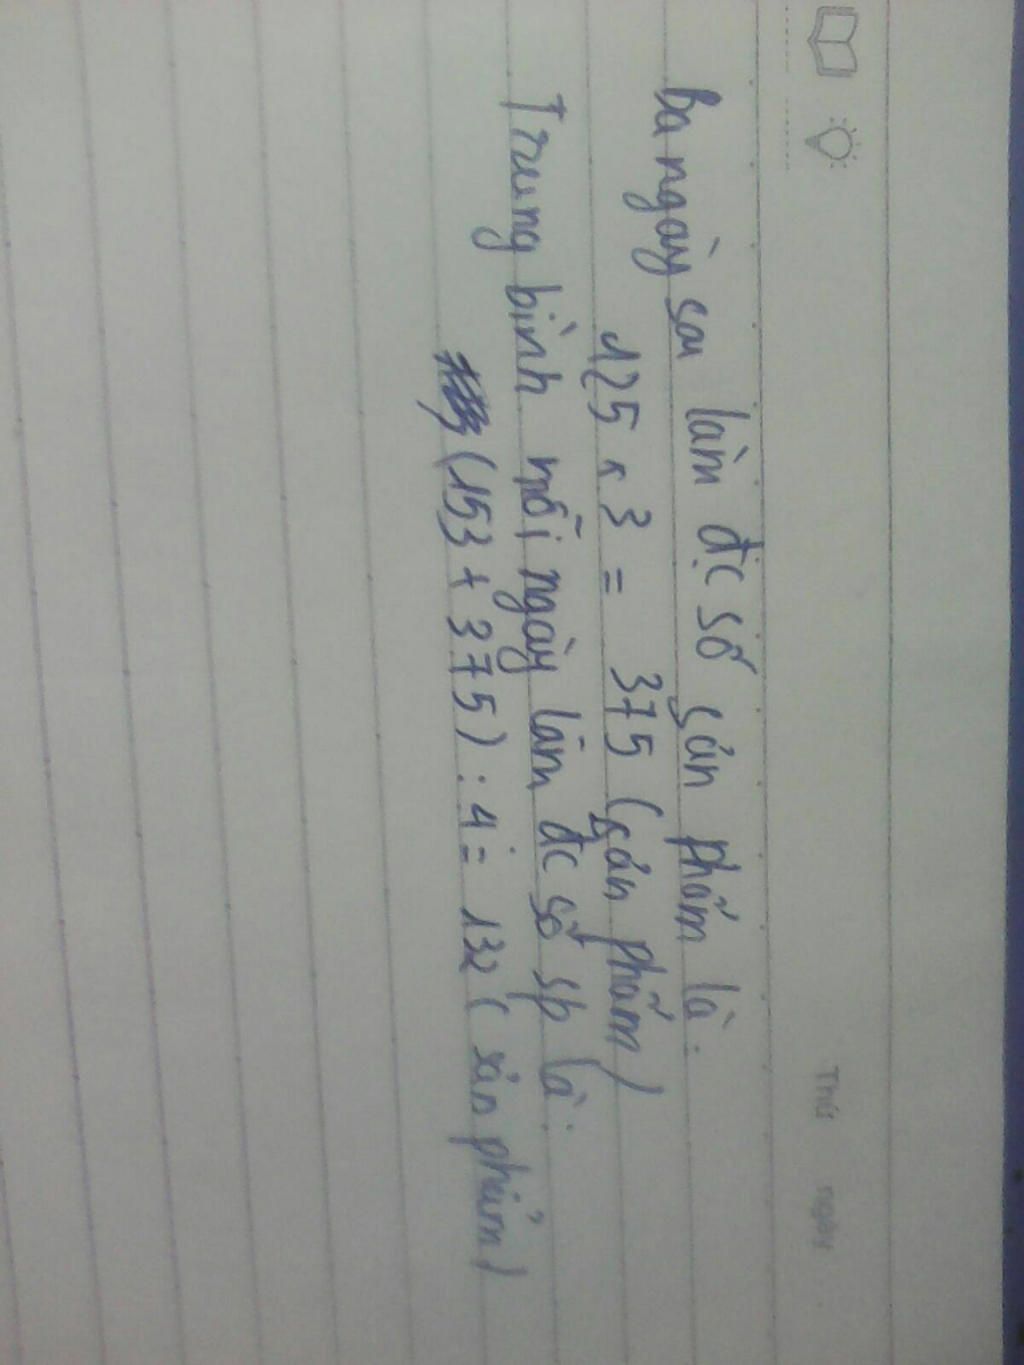 Thứ ngày
Ba ngày sau làm đc số sản phẩm là:
125 x 3 = 375 (sản phẩm)
Trung bình mỗi ngày làm đc số sp là:
(153 + 375) : 4 = 132 (sản phẩm)